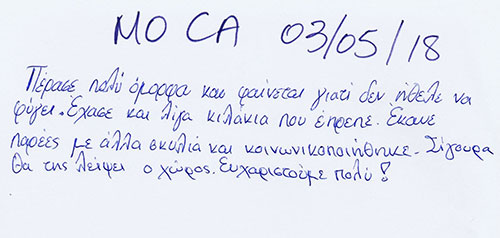 MOCA 03/05/18
Πέρασε πολύ όμορφα και φαίνεται γιατί δεν ήθελε να
φύγει. Έχασε και λίγα κιλάκια που έπρεπε. Έκανε
παρέες με άλλα σκυλιά και κοινωνικοποιήθηκε. Σίγουρα
θα της λείψει ο χώρος. Ευχαριστούμε πολύ!